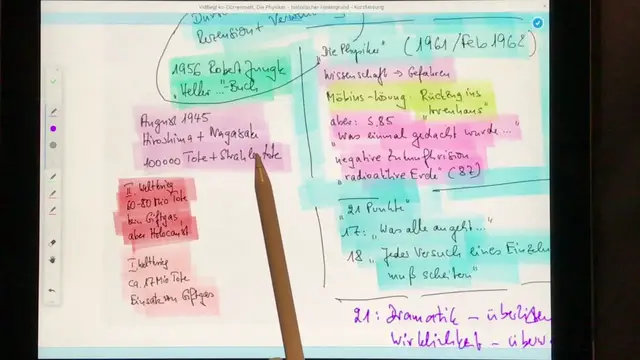 Rezension +
1956 Robert Jungk
"Heller ..."-Buch
August 1945
Hiroshima + Nagasaki
100000 Tote + Strahlentote
II. Weltkrieg
60-80 Mio Tote
kein Giftgas,
aber Holocaust
I. Weltkrieg
ca. 17 Mio Tote
Einsatz von Giftgas
"Die Physiker" (1961/Feb 1962)
Wissenschaft → Gefahren
Möbius-Lösung: Rückzug ins
"Irrenhaus"
aber: S. 85
"Was einmal gedacht wurde..."
negative Zukunftsvision
"radioaktive Erde" (87)
"21 Punkte"
17: "Was alle angeht..."
18 "Jeder Versuch eines Einzeln
muß scheitern"
21: Dramatik -
Wirklichkeit -